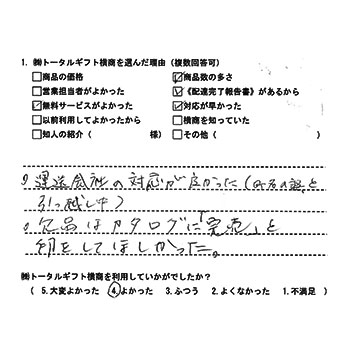 1. ㈱トータルギフト横商を選んだ理由（複数回答可）
□商品の価格 ☑商品数の多さ
□営業担当者がよかった ☑《配達完了報告書》があるから
☑無料サービスがよかった ☑対応が早かった
□以前利用してよかったから □横商を知っていた
□知人の紹介（ 様） □その他（ ）
運送会社の対応が良かった（
引っ越し中）
欠品はカタログに「完売」と
印をしてほしかった。
㈱トータルギフト横商を利用していかがでしたか？
（ 5.大変よかった ④.よかった 3.ふつう 2.よくなかった 1.不満足 ）